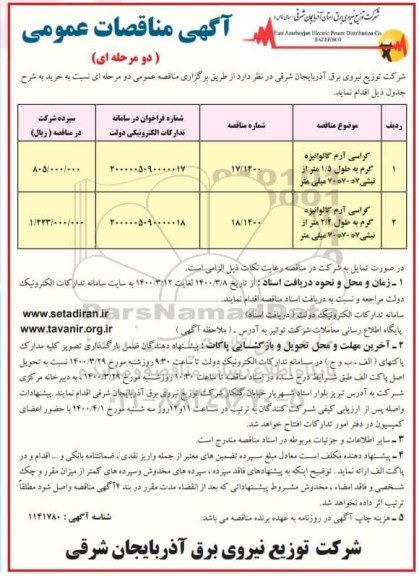 شرکت توزیع نیروی برق استان آذربایجان شرقی
East Azarbayjan Electric Power Distribution Co
آگهی مناقصات عمومی
( دو مرحله ای)
شرکت توزیع نیروی برق آذربایجان شرقی در نظر دارد از طریق برگزاری مناقصه عمومی دو مرحله ای نسبت به خرید به شرح
جدول ذیل اقدام نماید.
ردیف	موضوع مناقصه	شماره مناقصه	شماره فراخوان در سامانه تدارکات الکترونیکی دولت	سپرده شرکت در مناقصه ( ریال)
۱	کراسی آرم گالوانیزه گرم به طول ۱/۵ متر از نبشی۷*۷۰*۷۰ میلی متر	۱۷/۱۴۰۰	۲۰۰۰۰۰۵۰۹۰۰۰۰۰۱۷	۸۰۵/۰۰۰/۰۰۰
۲	کراسی آرم گالوانیزه گرم به طول ۲/۴ متر از نبشی۷*۷۰*۷۰ میلی متر	۱۸/۱۴۰۰	۲۰۰۰۰۰۵۰۹۰۰۰۰۰۱۸	۱/۲۲۳/۰۰۰/۰۰۰
در صورت تمایل به شرکت در مناقصه رعایت نکات ذیل الزامی است.
۱ ـ زمان و محل و نحوه دریافت اسناد : از تاریخ ۱۴۰۰/۳/۸ لغایت ۱۴۰۰/۳/۱۲ به سایت سامانه تدارکات الکترونیک
دولت مراجعه و نسبت به دریافت اسناد مناقصه اقدام نمایند.
سامانه تدارکات الکترونیک دولت ( دریافت اسناد) www.setadiran.ir
پایگاه اطلاع رسانی معاملات شرکت توانیر به آدرس ـ (ملاحظه آگهی ) www.tavanir.org.ir
۲ ـ آخرین مهلت و محل تحویل و بازگشایی پاکات : پیشنهاد دهندگان ضمن بارگذاری تصویر کلیه مدارک
پاکتهای ( الف ، ب و ج ) در سامانه تدارکات الکترونیک دولت تا ساعت ۹:۳۰ روزشنبه مورخ ۱۴۰۰/۳/۲۹ نسبت به تحویل
اصل پاکت الف طبق شرایط درج شده در اسناد مناقصه تا ساعت ۱۰:۳۰ روزشنبه مورخ ۱۴۰۰/۳/۲۹، به دبیرخانه مرکزی
شرکت به آدرس تبریز بلوار استاد شهریار خیابان گلکار شرکت توزیع نیروی برق آذربایجان شرقی اقدام نمایند .پیشنهادات
واصله پس از ارزیابی کیفی شرکت کنندگان به ترتیب در ساعت ۱۱و۱۲روز سه شنبه مورخ ۱۴۰۰/۴/۱ با حضور اعضای
کمیسیون در دفتر امور تدارکات افتتاح خواهد شد.
۳ ـ سایر اطلاعات و جزئیات مربوطه در اسناد مناقصه مندرج است.
۴ ـ پیشنهاد دهنده مکلف است معادل مبلغ سپرده تضمین های معتبر از جمله واریز نقدی ، ضمانتنامه بانکی و ... اقدام و در
پاکت الف ارائه نماید . توضیح اینکه به پیشنهادهای فاقد سپرده ، سپرده های مخدوش وسپرده های کمتر از میزان مقرر و چک
شخصی و فاقد امضاء ، مخدوش مشروط پیشنهاداتی که بعد از انقضاء مدت مقرر در بند ۲آگهی مناقصه واصل شود مطلقاً
ترتیب اثر داده نخواهد شد.
۵ ـ هزینه چاپ آگهی در روزنامه به عهده برنده مناقصه می باشد.
شناسه آگهی : ۱۱۴۱۷۸۰
شرکت توزیع نیروی برق آذربایجان شرقی